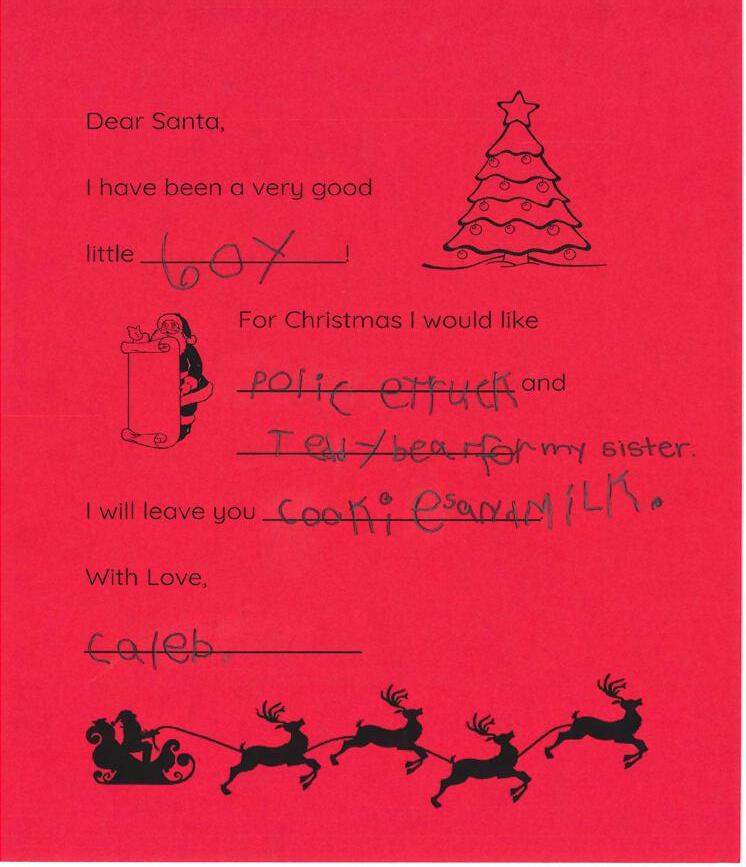 Dear Santa,
I have been a very good
little boy!
For Christmas I would like
police truck and
Teddy bear for my sister.
I will leave you cookies and MiLK.
With Love,
caleb.